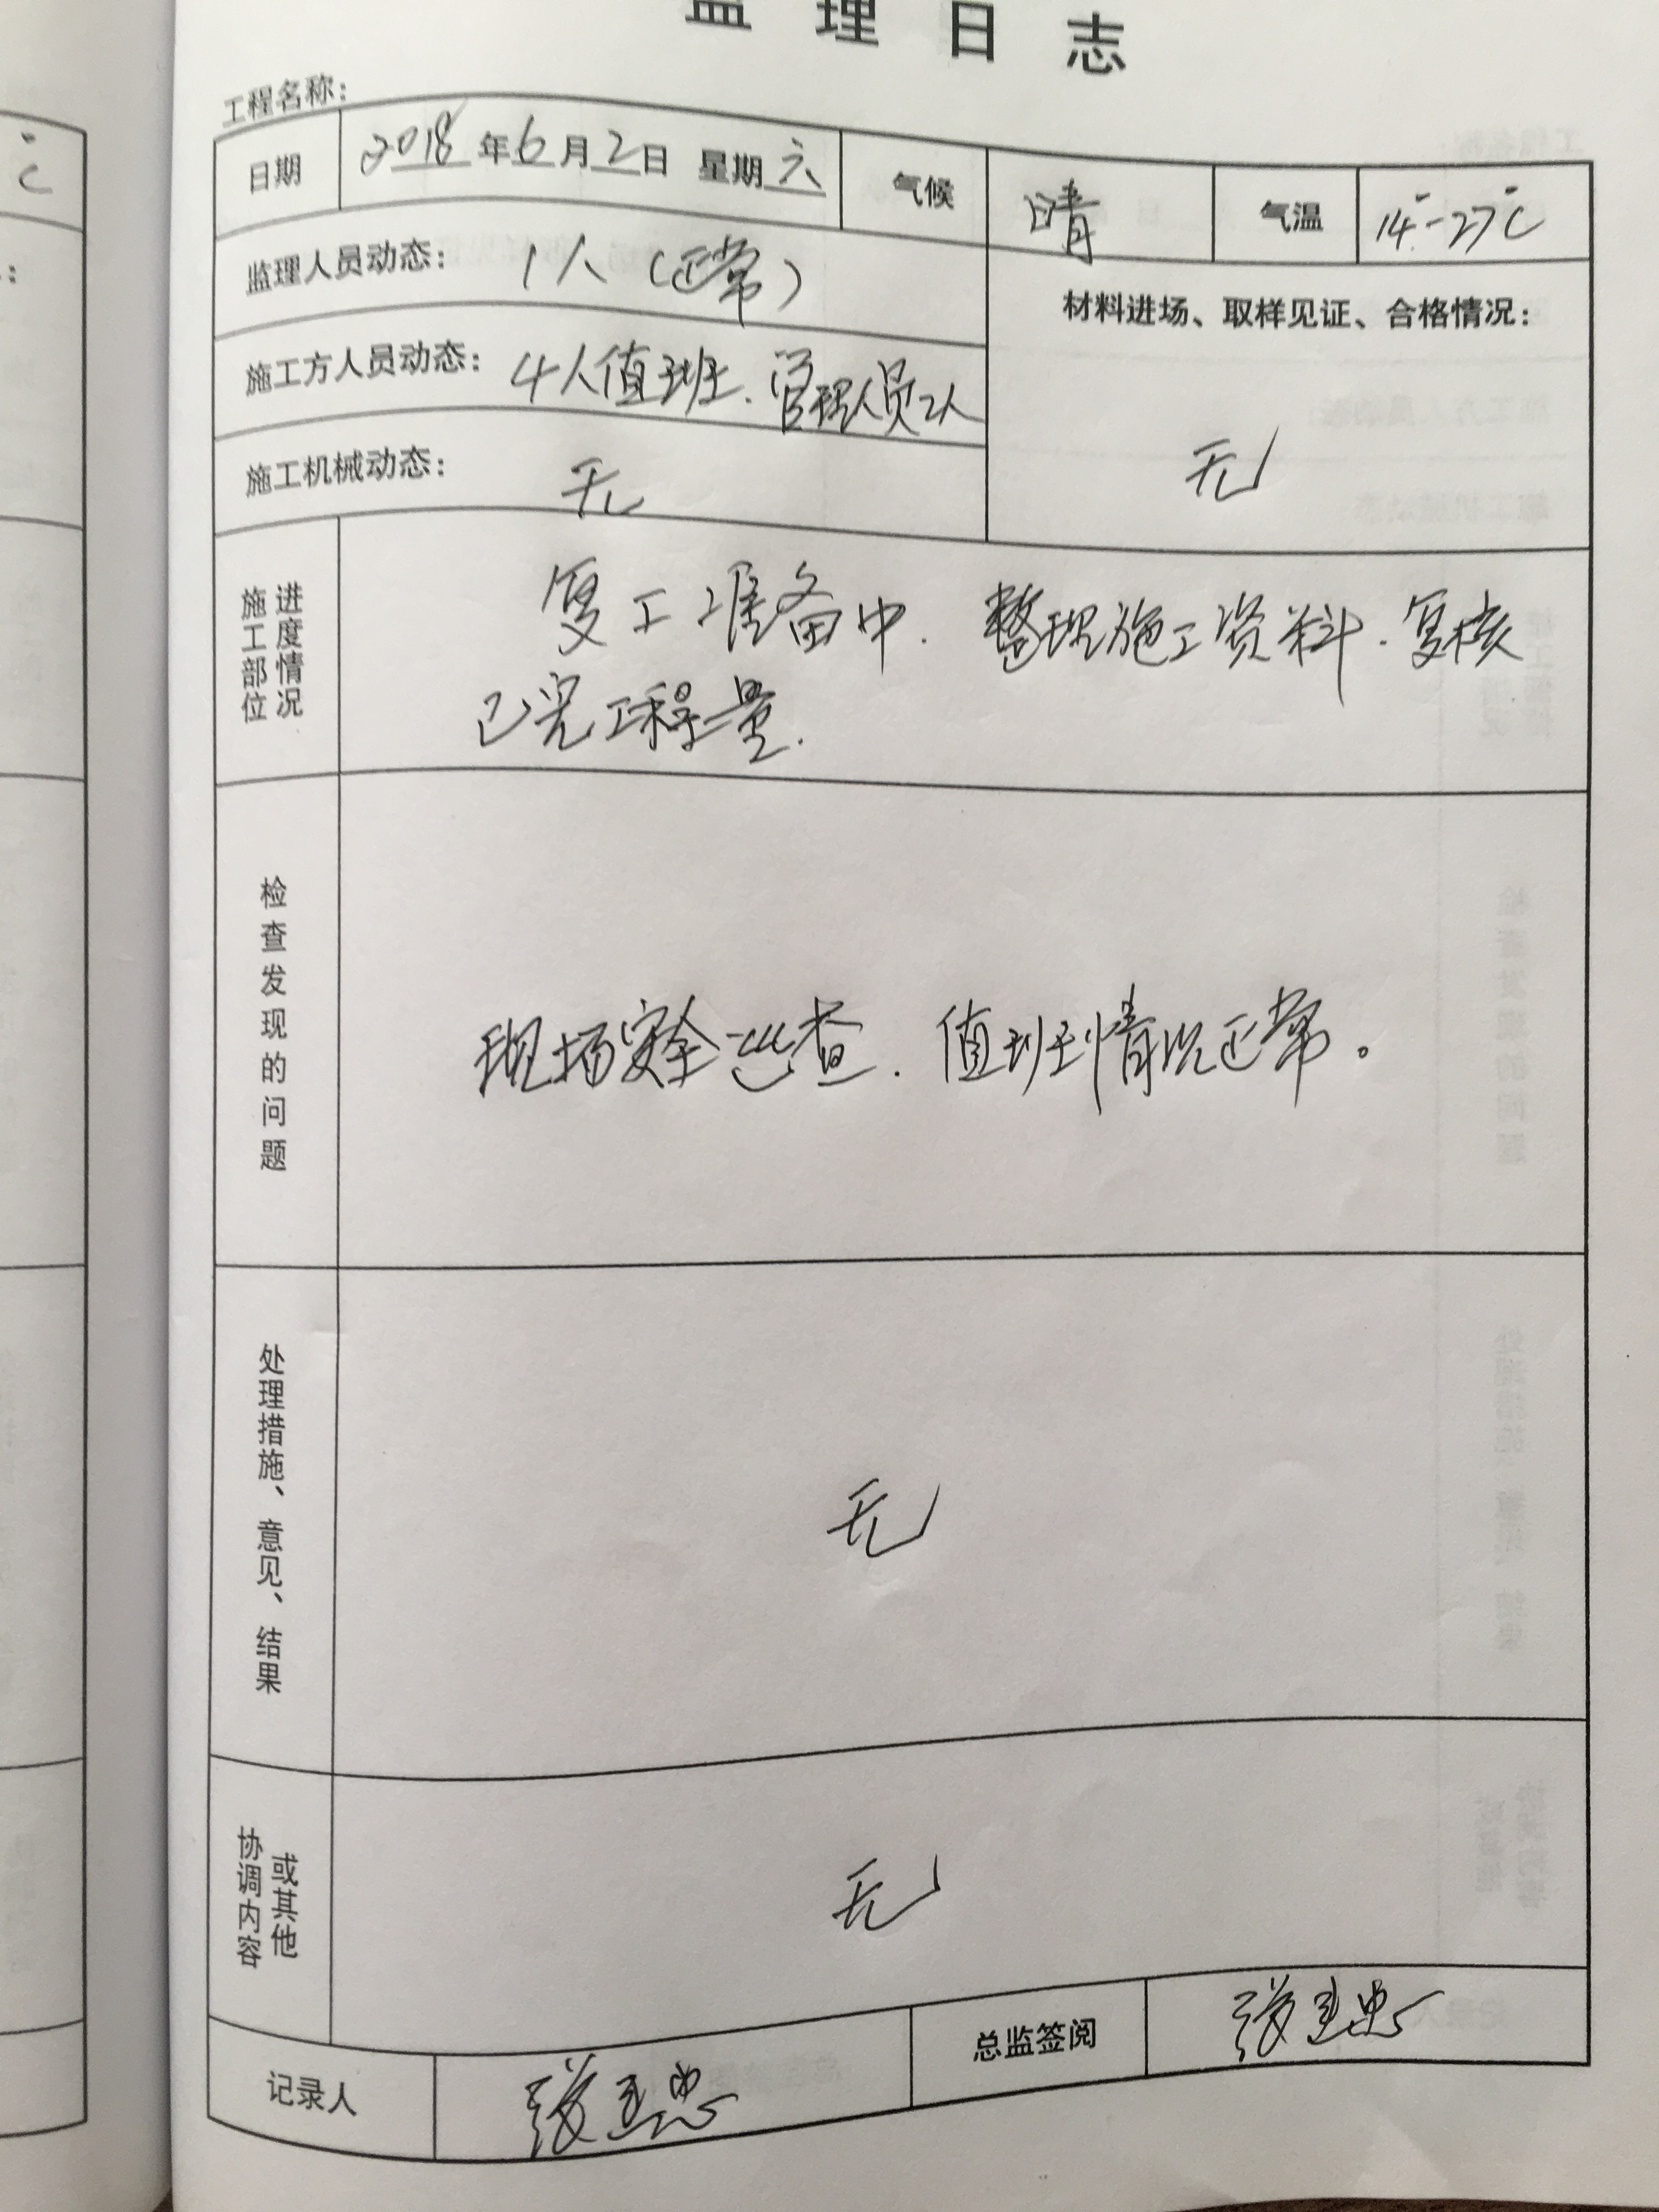 监理日志
工程名称：
日期 2018年6月2日 星期六 气候 晴 气温 14-27℃
监理人员动态： 1人（正常）
材料进场、取样见证、合格情况：
施工方人员动态： 4人值班.管理人员2人
施工机械动态： 无
无
施工部位
进度情况
复工准备中.整理施工资料.复核
已完工程量.
检查发现的问题
现场安全巡查.值班情况正常。
处理措施、意见、结果
无
协调内容
或其他
无
记录人 总监签阅